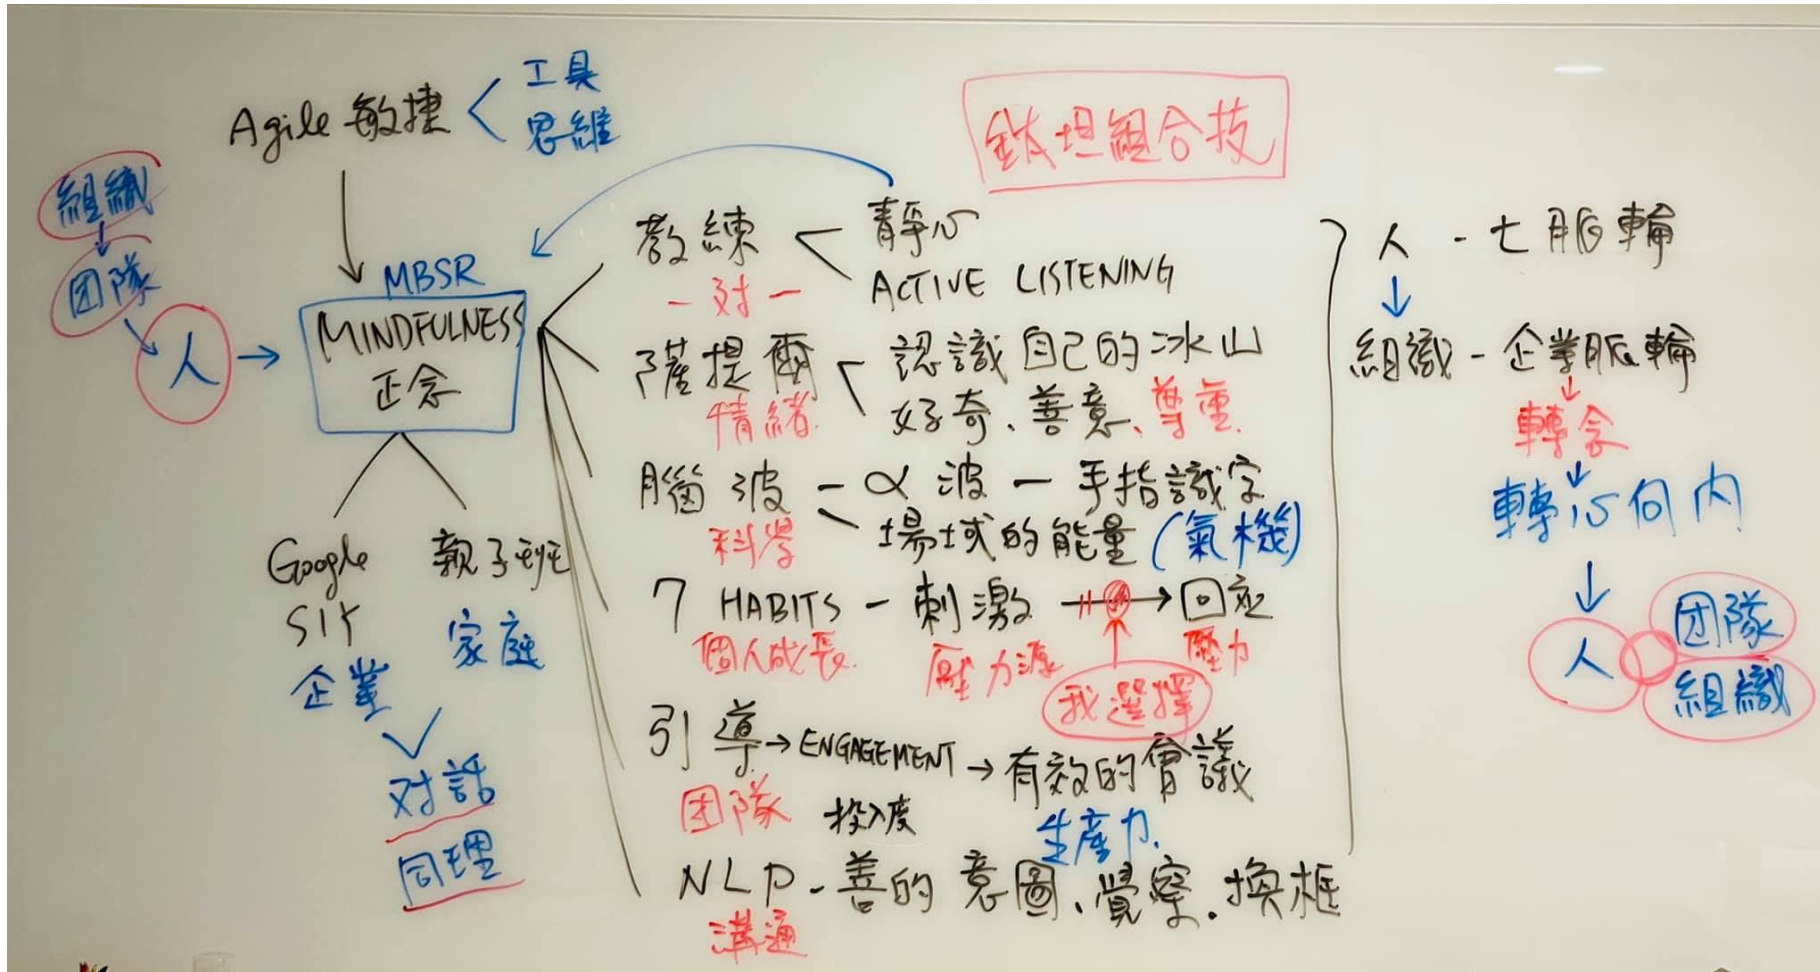 Agile 敏捷
工具
思維
組織
团隊
人
MBSR
MINDFULNESS
正念
Google
SIY
企業
親子班
家庭
对話
同理
鈦坦組合技
教練
一对一
靜心
ACTIVE LISTENING
薩提爾
情緒
認識自己的冰山
好奇、善意、尊重
腦波 - α波 - 手指識字
科學
場域的能量(氣機)
7 HABITS - 刺激 → 回应
個人成長 壓力源 壓力
我選擇
引導 → ENGAGEMENT → 有效的會議
团隊 投入度 生產力
NLP - 善的意圖、覺察、換框
溝通
人 - 七脈輪
組織 - 企業脈輪
轉念
轉心向内
人
团隊
組織